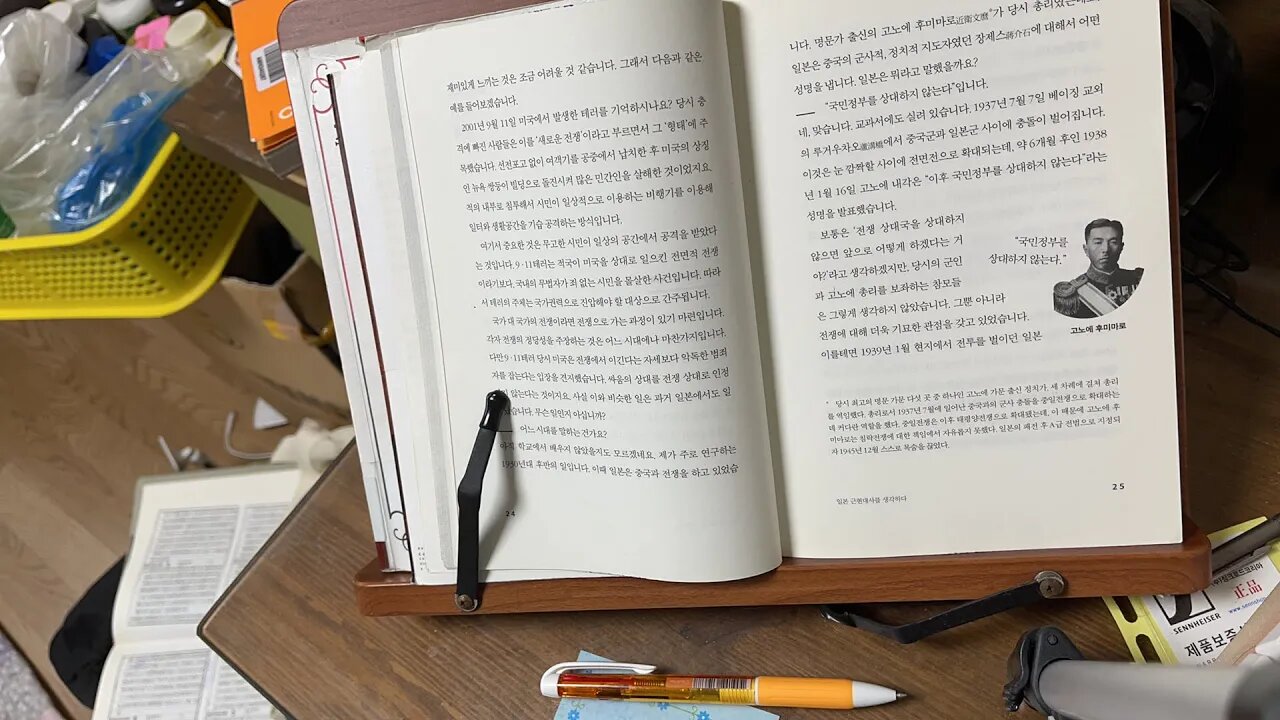 재미있게 느끼는 것은 조금 어려울 것 같습니다. 그래서 다음과 같은
예를 들어보겠습니다.
2001년 9월 11일 미국에서 발생한 테러를 기억하시나요? 당시 충
격에 빠진 사람들은 이를 ‘새로운 전쟁’이라고 부르면서 그 ‘형태’에 주
목했습니다. 선전포고 없이 여객기를 공중에서 납치한 후 미국의 상징
인 뉴욕 쌍둥이 빌딩으로 돌진시켜 많은 민간인을 살해한 것이었지요.
적의 내부로 침투해서 시민이 일상적으로 이용하는 비행기를 이용해
일터와 생활공간을 기습 공격하는 방식입니다.
여기서 중요한 것은 무고한 시민이 일상의 공간에서 공격을 받았다
는 것입니다. 9·11테러는 적국이 미국을 상대로 일으킨 전면적 전쟁
이라기보다, 국내의 무법자가 죄 없는 시민을 몰살한 사건입니다. 따라
서 테러의 주체는 국가권력으로 진압해야 할 대상으로 간주됩니다.
국가 대 국가의 전쟁이라면 전쟁으로 가는 과정이 있기 마련입니다.
각자 전쟁의 정당성을 주장하는 것은 어느 시대에나 마찬가지입니다.
다만 9·11테러 당시 미국은 전쟁에서 이긴다는 자세보다 악독한 범죄
자를 잡는다는 입장을 견지했습니다. 싸움의 상대를 전쟁 상대로 인정
않는다는 것이지요. 사실 이와 비슷한 일은 과거 일본에서도 일
습니다. 무슨 일인지 아십니까?
어느 시대를 말하는 건가요?
아직 학교에서 배우지 않았을지도 모르겠네요. 제가 주로 연구하는
1930년대 후반의 일입니다. 이때 일본은 중국과 전쟁을 하고 있었습
24
니다. 명문가 출신의 고노에 후미마로近衛文麿*가 당시 총리였는데,
일본은 중국의 군사적, 정치적 지도자였던 장제스蔣介石에 대해서 어떤
성명을 냅니다. 일본은 뭐라고 말했을까요?
“국민정부를 상대하지 않는다”입니다.
네, 맞습니다. 교과서에도 실려 있습니다. 1937년 7월 7일 베이징 교외
의 루거우차오蘆溝橋에서 중국군과 일본군 사이에 충돌이 벌어집니다.
이것은 눈 깜짝할 사이에 전면전으로 확대되는데, 약 6개월 후인 1938
년 1월 16일 고노에 내각은 “이후 국민정부를 상대하지 않는다”라는
성명을 발표했습니다.
보통은 ‘전쟁 상대국을 상대하지
않으면 앞으로 어떻게 하겠다는 거
야?’라고 생각하겠지만, 당시의 군인
과 고노에 총리를 보좌하는 참모들
은 그렇게 생각하지 않았습니다. 그뿐 아니라
전쟁에 대해 더욱 기묘한 관점을 갖고 있었습니다.
이를테면 1939년 1월 현지에서 전투를 벌이던 일본
“국민정부를
상대하지 않는다.”
고노에 후미마로
* 당시 최고의 명문 가문 다섯 곳 중 하나인 고노에 가문 출신 정치가. 세 차례에 걸쳐 총리
를 역임했다. 총리로서 1937년 7월에 일어난 중국과의 군사 충돌을 중일전쟁으로 확대하는
데 커다란 역할을 했다. 중일전쟁은 이후 태평양전쟁으로 확대됐는데, 이 때문에 고노에 후
미마로는 침략전쟁에 대한 책임에서 자유롭지 못했다. 일본의 패전 후 A급 전범으로 지정되
자 1945년 12월 스스로 목숨을 끊었다.
일본 근현대사를 생각하다
25
SENNHEISER
正品
제품보증